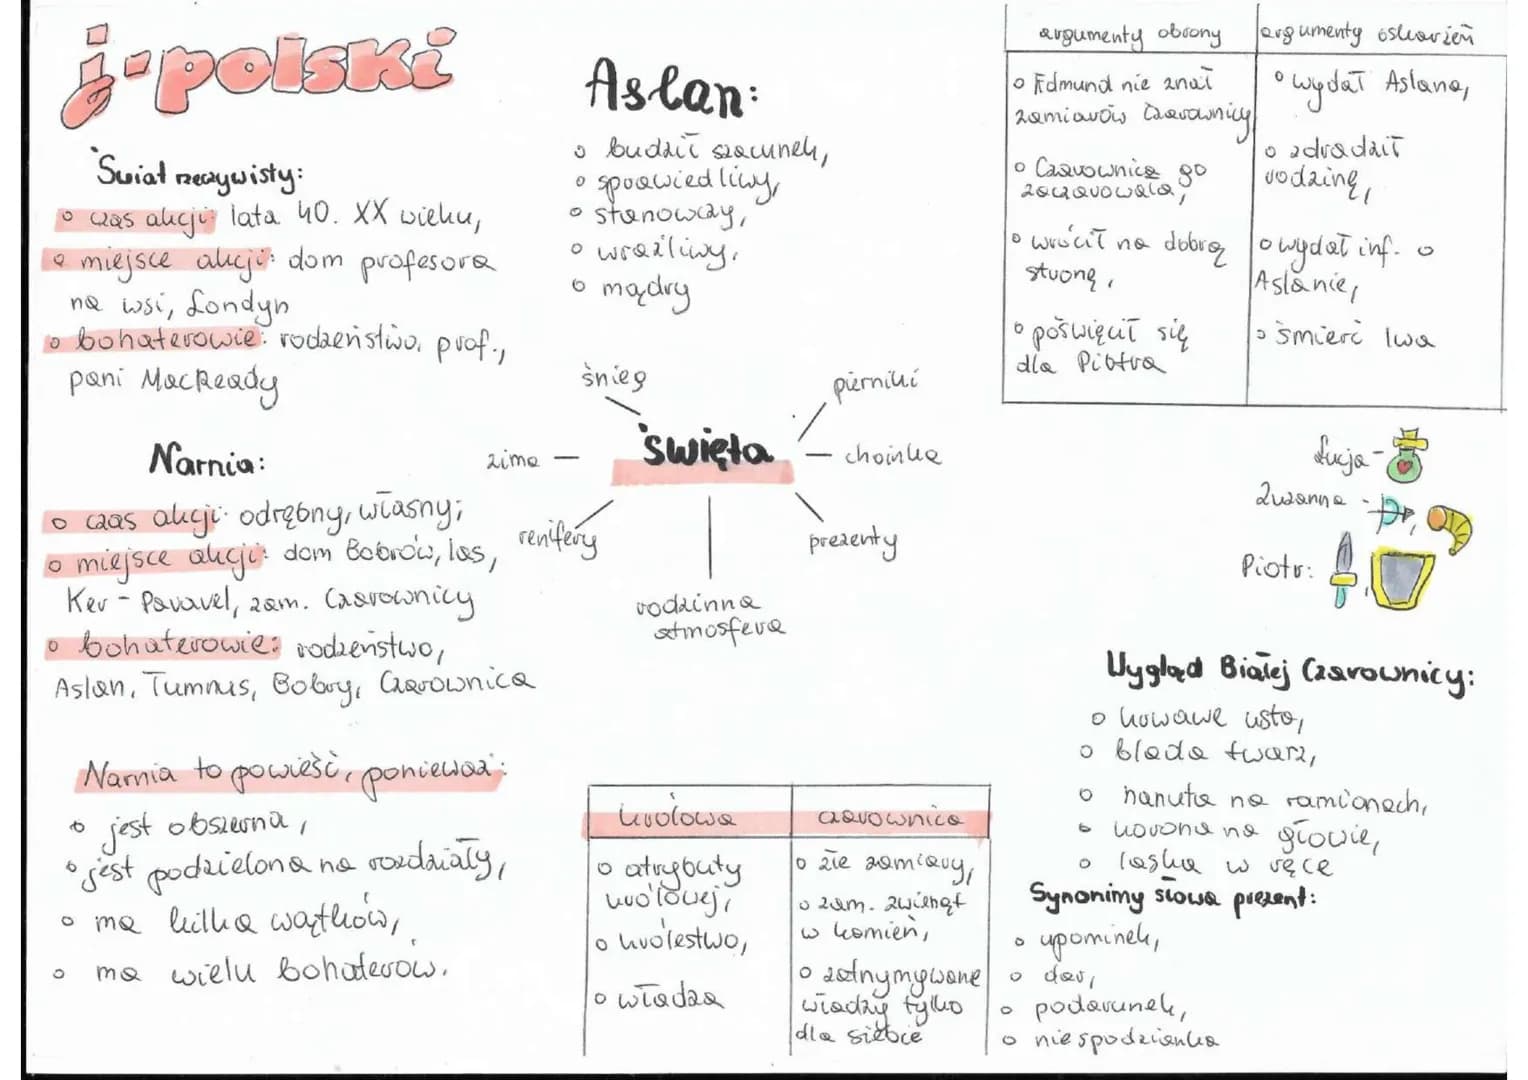 j. polski
Świat rzeczywisty:
o czas akcji: lata 40. XX wieku,
o miejsce akcji: dom profesora
na wsi, Londyn
o bohaterowie: rodzeństwo, prof.,
pani MacReady
Narnia:
o czas akcji: odrębny, własny;
o miejsce akcji: dom Bobrów, las,
Ker - Paravel, zam. Czarownicy
o bohaterowie: rodzeństwo,
Aslan, Tumnus, Bobry, Czarownica
Narnia to powieść, ponieważ:
o jest obszerna,
o jest podzielona na rozdziały,
o ma kilka wątków,
o ma wielu bohaterów.
Aslan:
o budził szacunek,
o sprawiedliwy,
o stanowczy,
o wrażliwy,
o mądry
śnieg
pierniki
zima
święta
choinka
renifery
prezenty
rodzinna
atmosfera
królowa
o atrybuty
królowej,
o królestwo,
o władza
czarownica
o złe zamiary,
o zam. zwierząt
w kamień,
o zatrzymywanie
władzy tylko
dla siebie
argumenty obrony
o Edmund nie znał
zamiarów Czarownicy
o Czarownica go
zaczarowała,
o wrócił na dobrą
stronę,
o poświęcił się
dla Piotra
argumenty oskarżeń
o wydał Aslana,
o zdradził
rodzinę,
o wydał inf. o
Aslanie,
o śmierć lwa
Łucja -
Zuzanna -
Piotr:
Wygląd Białej Czarownicy:
o krwawe usta,
o blada twarz,
o narzuta na ramionach,
o korona na głowie,
o laska w ręce
Synonimy słowa prezent:
o upominek,
o dar,
o podarunek,
o niespodzianka